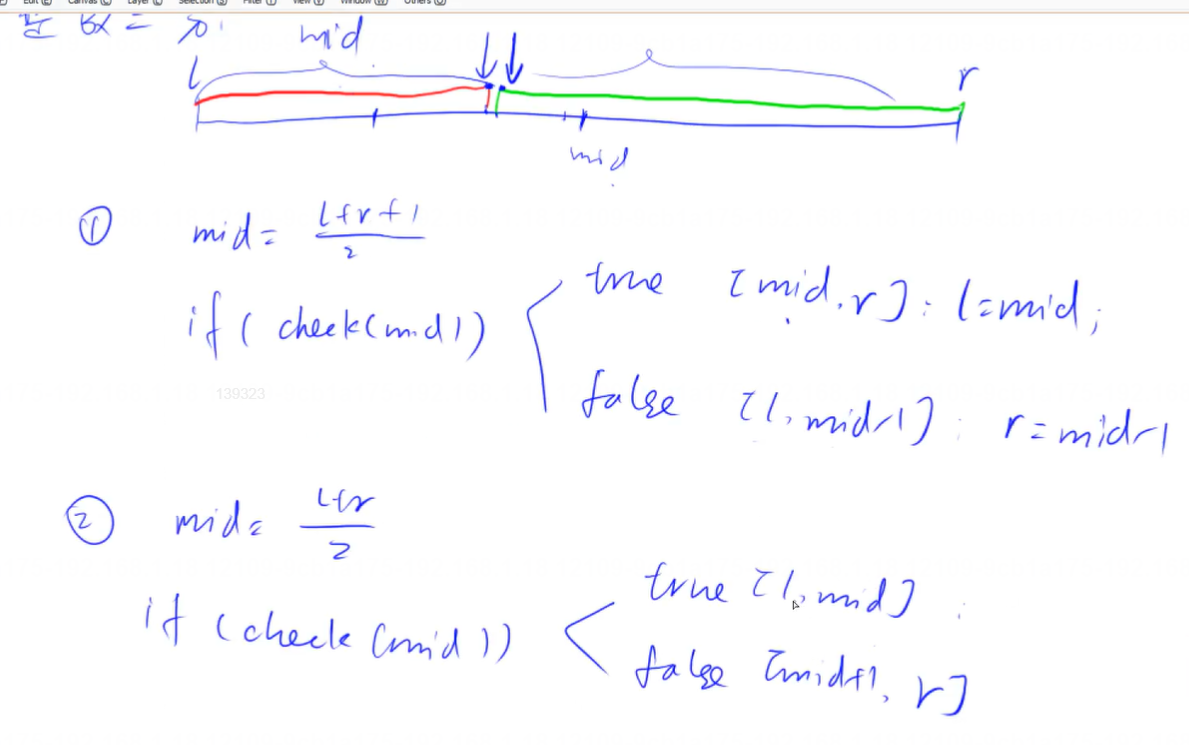 Edit Canvas Layer Selection Filter View Window Others
mid
l r
mid
① mid = l+r+1
2
if ( check(mid)) true [mid, r] : l=mid;
false [l, mid-1] : r=mid-1
139323
② mid = l+r
2
if (check (mid)) true [l, mid]
false [mid+1, r]